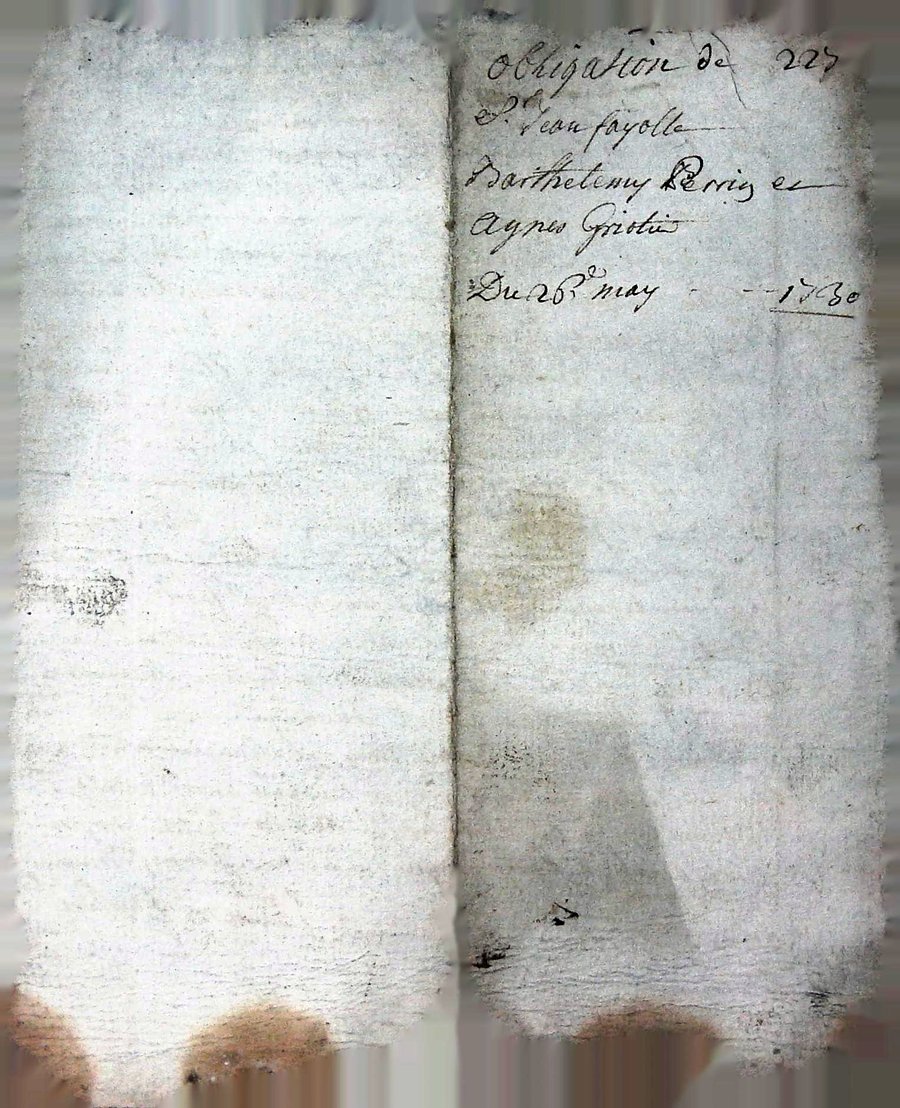 Obligation de 227
Sr. Jean fayolle
Barthelemy Perrin et
Agnes Griotie
Du 26e may - - - 1730